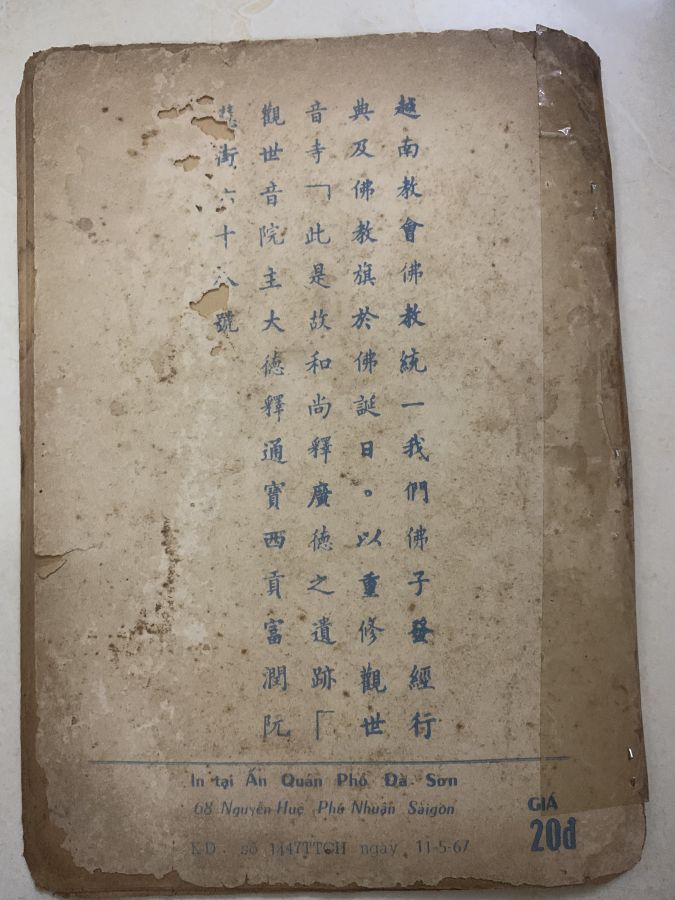 越南教會佛教統一我們佛子發經行
典及佛教旗於佛誕日。以重修觀世
音寺「此是故和尚釋廣德之遺跡「
觀世音院主大德釋通寶西貢富潤阮
街六十八號
In tại Ấn Quán Phổ Đà Sơn
68 Nguyễn Huệ Phú Nhuận Sàigòn
GIÁ
20đ
KD. số 1447TTCH ngày 11-5-67